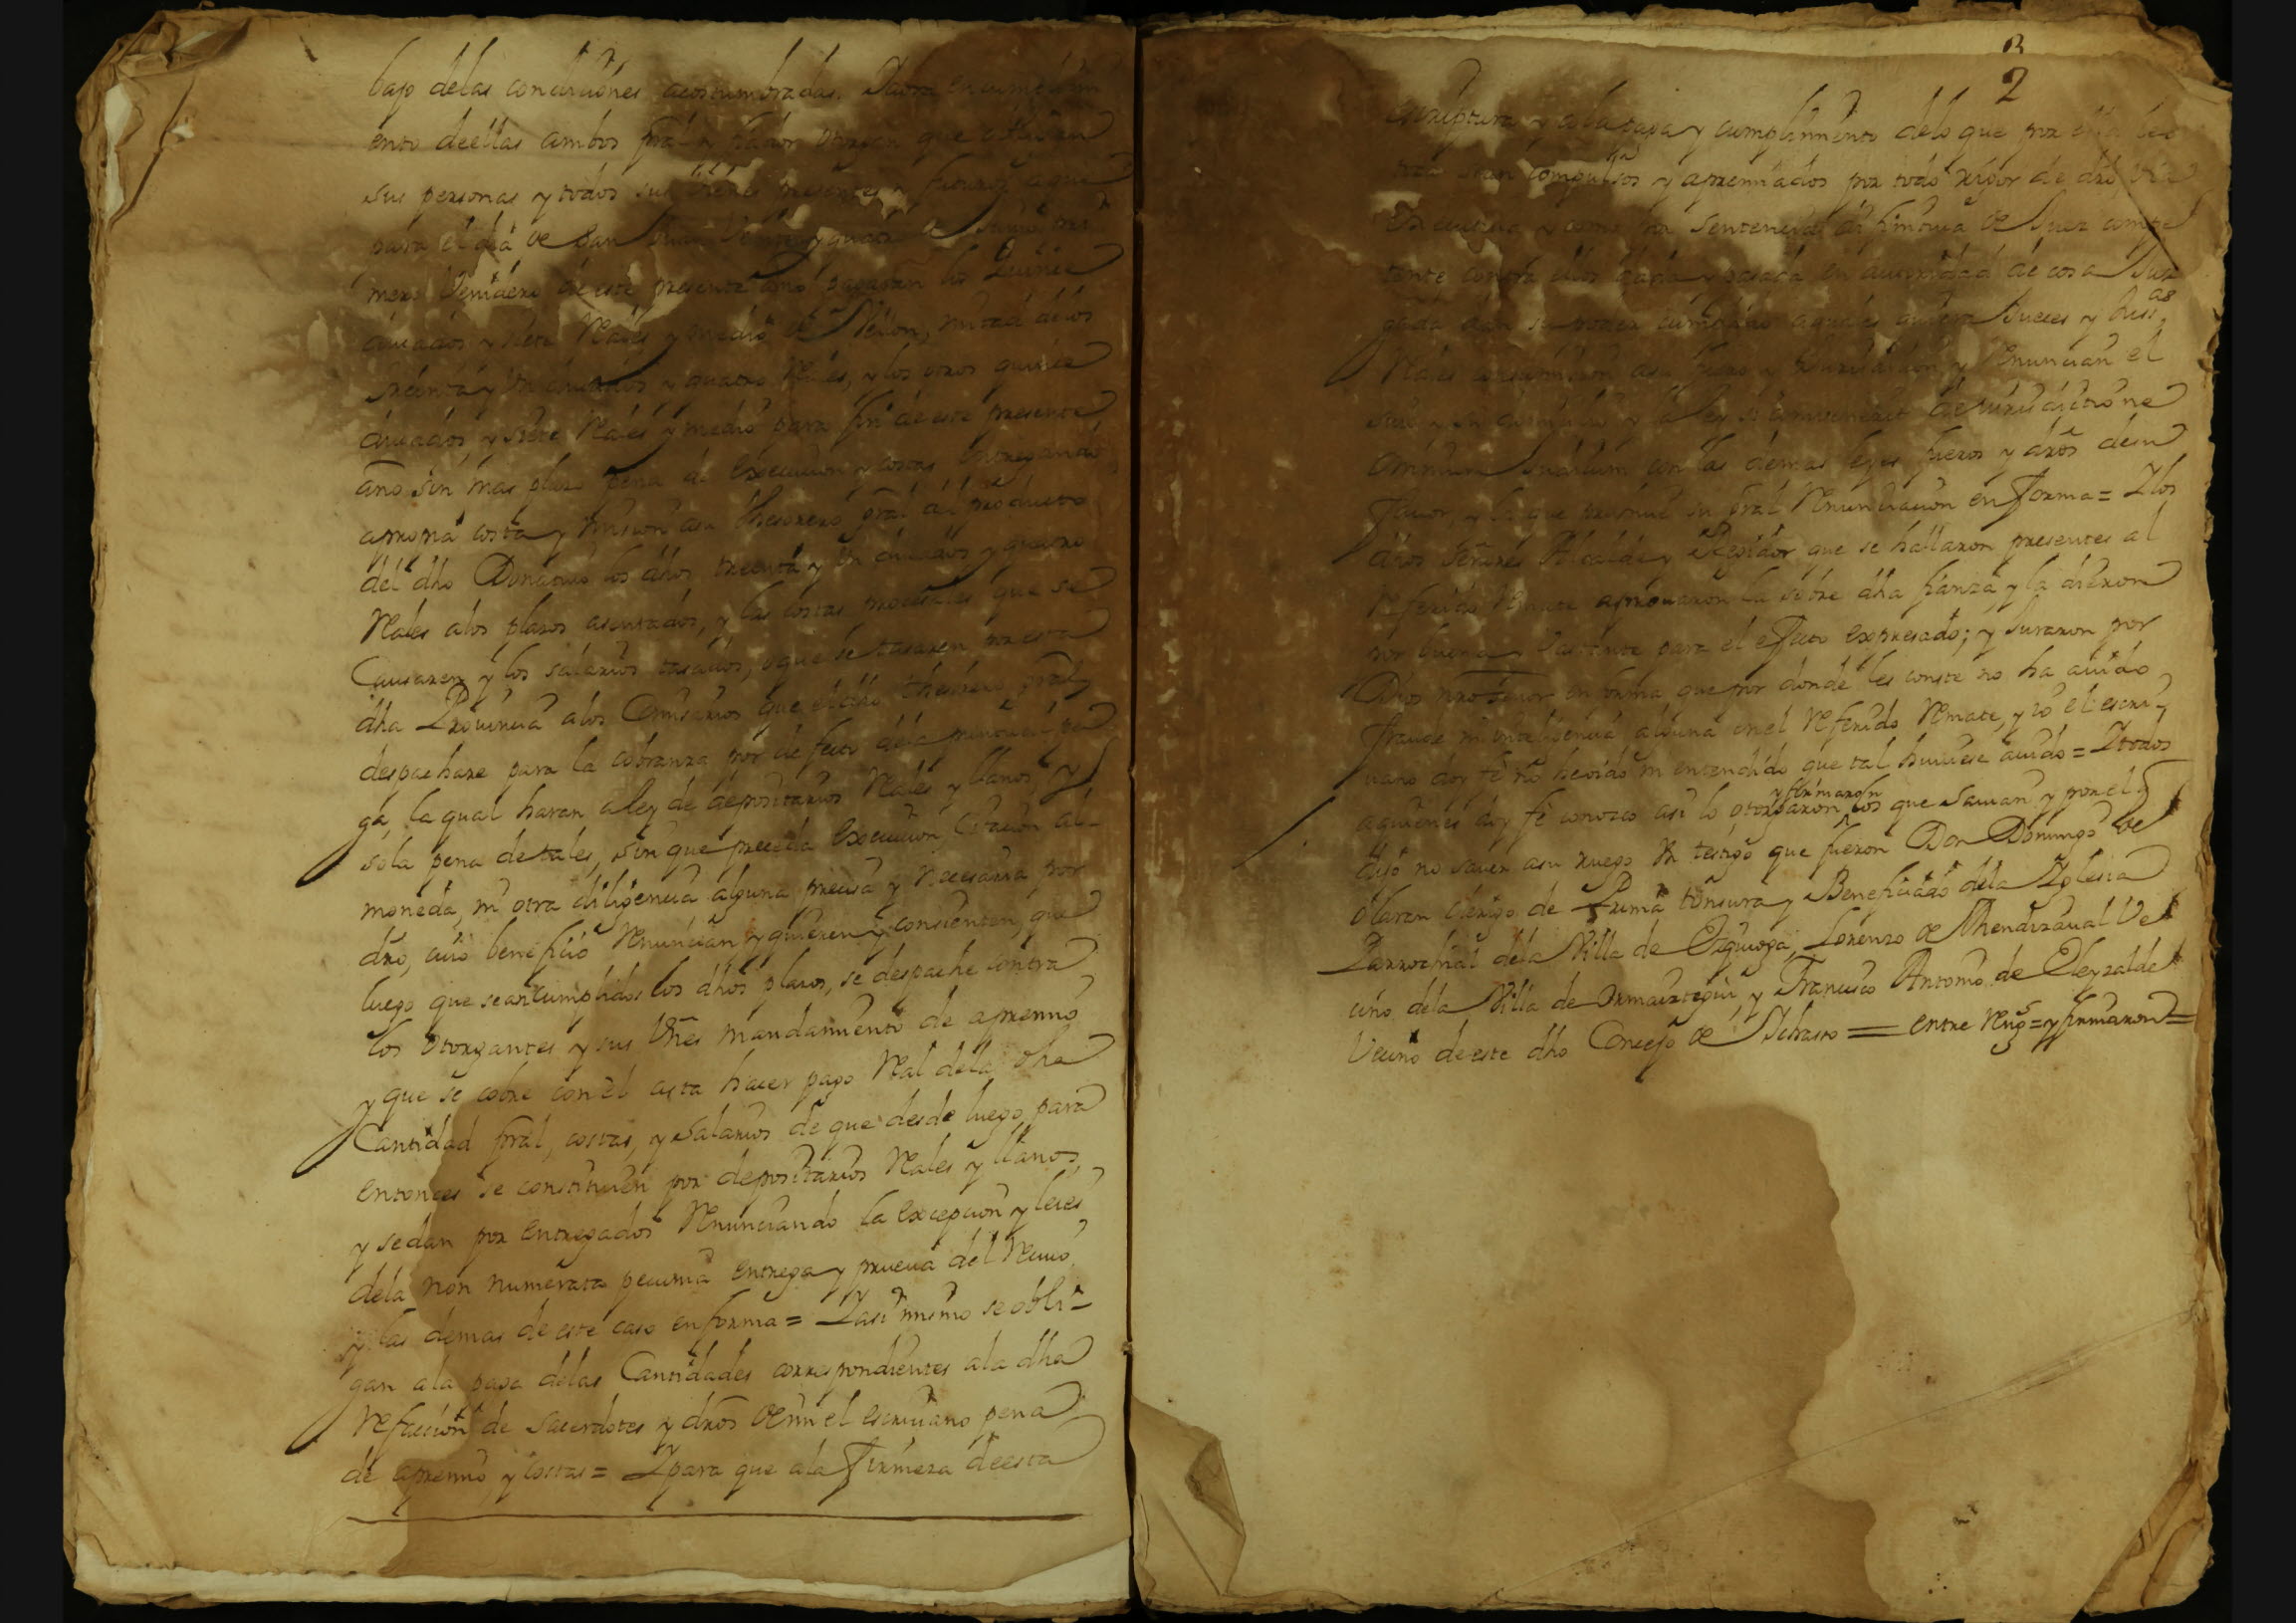 bajo delas condiciones acostumbradas. Y aora en cumplimi
ento deellas ambos pral y fiador otorgan que obligan
sus personas y todos sus vienes presentes y futuros a que
para el dia de San Juan Veinte y quatro de Junio pri
mero Venidero de este presente año pagaran los Quince
ducados y siete Rales y medio de Vellon, mitad de los
treinta y un ducados y quatro Rales, y los otros quince
ducados y siete Rales y medio para fin de este presente
año sin mas plazo pena de execucion y costas entregando
a propia costa y mision asu thesorero gral del producto
del dho Donativo los dhos treinta y un ducados y quatro
Rales alos plazos asentados, y las costas procesales que se
Causaren y los salarios tasados, o que se tasaren por esta
dha Provincia alos Comisarios que el dho thesorero gral
despachare para la cobranza por defecto dela puntual pa
ga, la qual haran a ley de depositarios Rales y llanos, y
sola pena de tales, sin que preceda execucion, Citacion al-
moneda, ni otra diligencia alguna precisa y necesaria por
dro, cuio beneficio Renuncian y quieren y consienten, que
luego que sean cumplidos los dhos plazos, se despache contra
los otorgantes y sus Vnes mandamiento de apremio
y que se cobre con el asta hacer pago Ral dela dha
Cantidad pral, costas, y Salarios de que desde luego para
entonces se constituien por depositarios Rales y llanos,
y sedan por entregados Renunciando la excepcion y leies
dela non numerata pecunia entrega y prueva del Recivo
y las demas de este caso en forma = Y asi mismo se obli-
gan ala paga delas Cantidades correspondientes ala dha
Refaccion de Sacerdotes y dros de mi el escrivano pena
de apremio y costas = Y para que ala firmeza de esta
2
escriptura y ala paga y cumplimiento delo que por ella les
toca sean Compulsos y apremiados por todo rigor de dro, via
executiva y como por Sentencia difinitiva de Juez compe
tente contra ellos dada y pasada en autoridad de cosa Juz
gada dan su poder cumplido a quales quiera Jueces y Justas
Rales sometieron asu fuero y Jurisdicion y Renuncian el
suio y su domicilio y la ley si convenerit de Jurisdictione
omnium Judicum con las demas leyes fueros y dros desu
favor, y la que prohive la gral Renunciacion en forma = Y los
dhos señores Alcalde y Regidor que se hallaron presentes al
referido Remate aprovaron la sobre dha fianza y la dieron
por buena y bastante para el efecto expresado; y Juraron por
Dios nro Señor en forma, que por donde les conste no ha avido
fraude ni inteligencia alguna enel Referido Remate, y yo el escri-
vano doy fe no he oido ni entendido que tal huviese avido = Y todos
y firmaron
aquienes doy fe conozco asi lo otorgaron los que Savian y por el q
dijo no saver asu ruego un testigo que fueron Don Domingo de
Olaran Clerigo de Prima tonsura y Beneficiado dela Yglesia
Parrochial dela Villa de Ezquioga, Lorenzo de Mendizaval Ve
cino dela Villa de Ormaiztegui, y Francisco Antonio de Eleyzalde
Vecino de este dho Concejo de = entre Rengs = y firmaron =